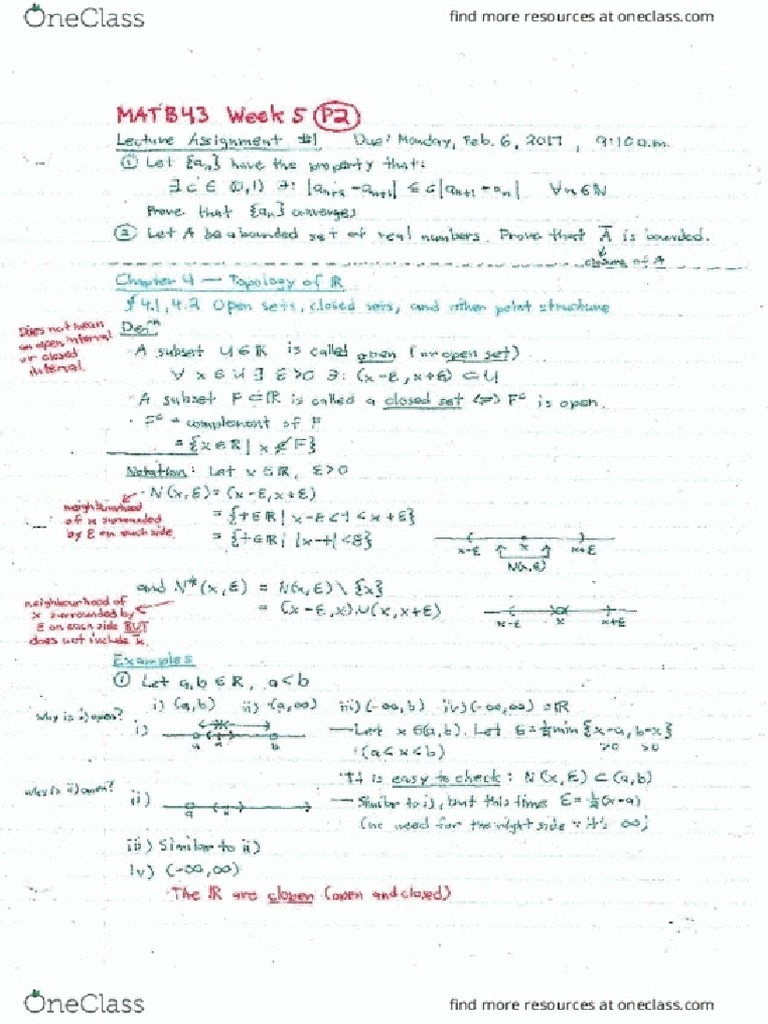 OneClass
find more resources at oneclass.com
MATB43 Week 5 P2
Lecture Assignment #1 Due: Monday, Feb. 6, 2017, 9:10a.m.
① Let {aₙ} have the property that:
∃ c ∈ (0,1) ∋: |aₙ₊₂ - aₙ₊₁| ≤ c|aₙ₊₁ - aₙ| ∀n∈ℕ
Prove that {aₙ} converges
② Let A be a bounded set of real numbers. Prove that A̅ is bounded.
closure of A
Chapter 4 — Topology of ℝ
§ 4.1, 4.2 Open sets, closed sets, and other point structure
Does not mean
an open interval
or closed
interval.
Defⁿ
· A subset U⊂ℝ is called open (or open set)
∀ x ∈ U ∃ ε>0 ∋: (x-ε, x+ε) ⊂ U
· A subset F⊂ℝ is called a closed set ⟺ Fᶜ is open.
· Fᶜ = complement of F
= {x∈ℝ | x∉F}
Notation: Let x∈ℝ, ε>0
· N(x,ε) = (x-ε, x+ε)
neighbourhood
of x surrounded
by ε on each side.
= {t∈ℝ | x-ε<t<x+ε}
= {t∈ℝ | |x-t|<ε}
x-ε x x+ε
N(x,ε)
and N*(x,ε) = N(x,ε) \ {x}
= (x-ε,x)∪(x,x+ε)
x-ε x x+ε
neighbourhood of
x surrounded by
ε on each side BUT
does not include x.
Examples
① Let a,b ∈ ℝ, a<b
i) (a,b) ii) (a,∞) iii) (-∞,b) iv) (-∞,∞) = ℝ
Why is i) open?
i) a x b — Let x∈(a,b). Let ε=½min{x-a, b-x}
>0 >0
(a<x<b)
It is easy to check: N(x,ε) ⊂ (a,b)
Why is ii) open?
ii) a x — Similar to i), but this time ε=½(x-a)
(no need for the right side ∵ it's ∞)
iii) Similar to ii)
iv) (-∞,∞)
The ℝ are clopen (open and closed)
OneClass
find more resources at oneclass.com